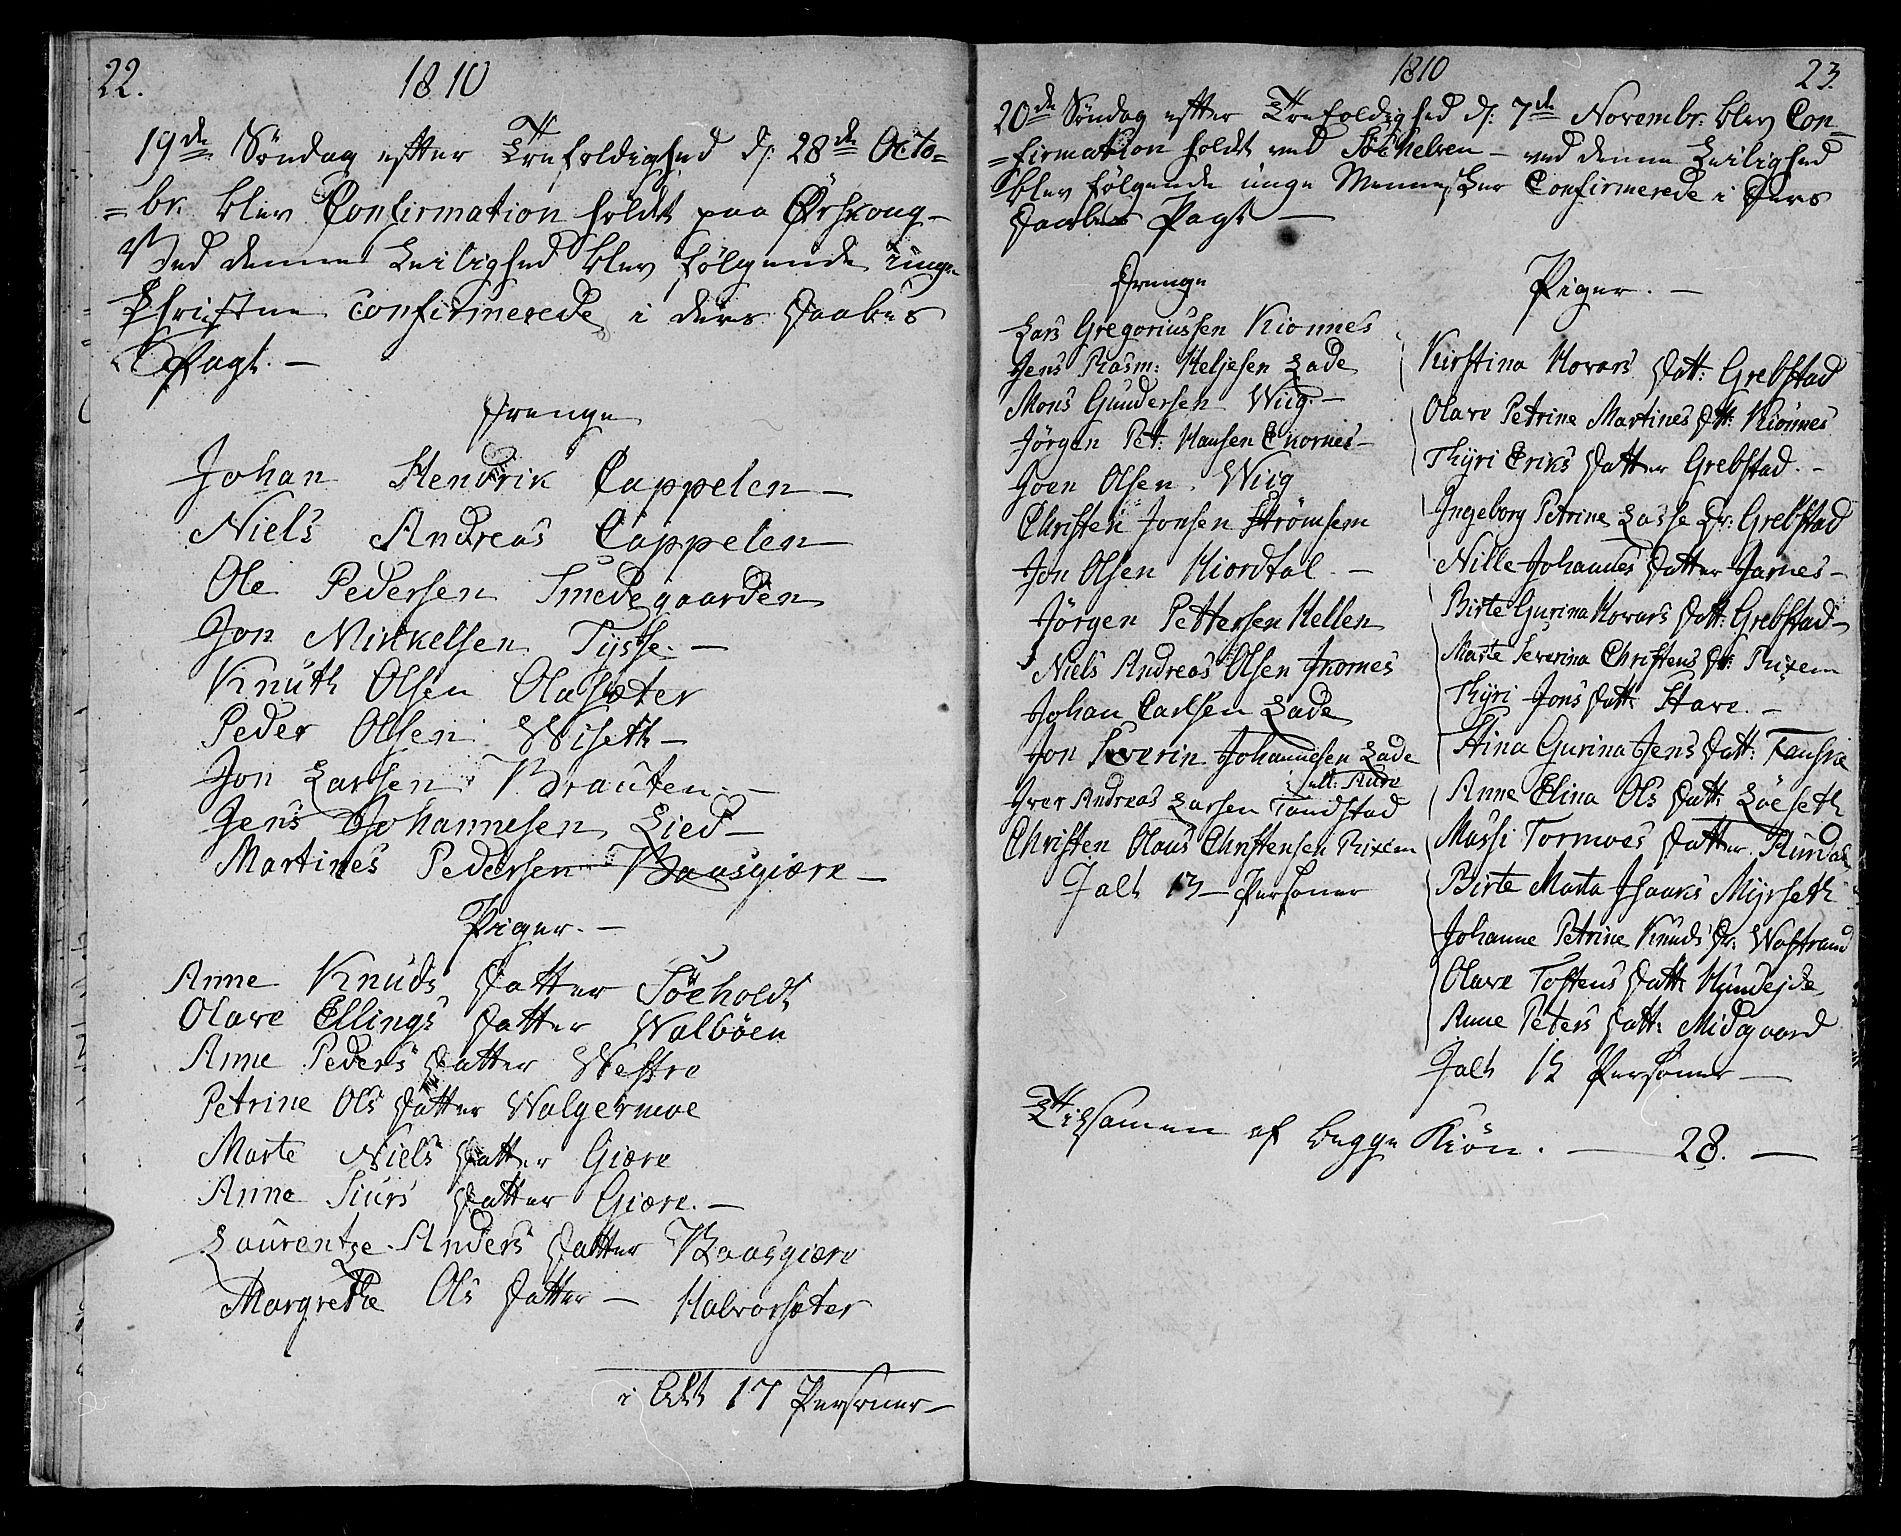 22.
1810
19de Söndag efter Trefoldighed d: 28de Octo=
=br. blev Confirmation holdt paa Ørskoug –
Ved denne Leilighed blev følgende unge
Christne confirmerede i deres Daabes
Pagt. –
Drenge
Johan Hendrik Cappelen –
Niels Andreas Cappelen –
Ole Pedersen Smedegaarden
Jon Mikkelsen Tysse. –
Knuth Olsen Olasæter
Peder Olsen Wiseth –
Jon Larsen Brauten. –
Jens Johannesen Lied –
Martines Pedersen Baasgiære –
Piger. –
Anne Knuds Datter Söeholdt
Olave Ellings Datter Walböen
Anne Peders Datter Westre
Petrine Ols Datter Walgermoe
Marte Niels Datter Giære
Anne Siurs Datter Giære. –
Laurentze Anders Datter Baasgiære
Margrethe Ols Datter – Halvorsæter
i Alt 17 Personer –
1810
23.
20de Söndag efter Trefoldighed d: 7de Novembr. blev Con=
=firmation holdt ved – ved denne Leilighed
blev følgende unge Mennesker Confirmerede i Ders
Daabes Pagt –
Drenge
Lars Gregoriussen Kionnes
Jens Rasm: Heljesen Lade
Mons Gundersen Wiig –
Jörgen Pet: Hansen Enornes –
Joen Olsen Wiig
Christen Jonsen Strömsem
Jon Olsen Hiordtal. –
Jörgen Pettersen Hellen
Niels Andreas Olsen Jnornes
Johan Carlsen Lade
Jon Severin Johannesen Lade
Aure
Iver Andreas Larsen Tandstad
Christen Olaus Christensen Rixem
Jalt 13 – Personer
Piger. –
Kirstina Hovars Datt: Grebstad
Olave Petrine Martines Dtt: Kiönnes
Thyri Eriks Datter Grebstad. –
Ingeborg Petrine Lasse Dr: Grebstad
Nille Johannes Datter Jarnes –
Birte Gurina Hovars Datt: Grebstad –
Marte Severina Christens Dr: Rixem
Thyri Jons Datt: Stave. –
Stina Gurina Jens Datt:
Anne Elina Ols Datt: Löeseth
Massi Tormoes Datter Rurdal
Birte Marta Isaaks Myrseth
Johanne Petrine Knuds Dr: Wastrand
Olave Tostens Datt: Hundejde
Anne Peters Datt: Midgaard
Jalt 15 Personer –
Tilsamen af begge Kiön. – 28. –